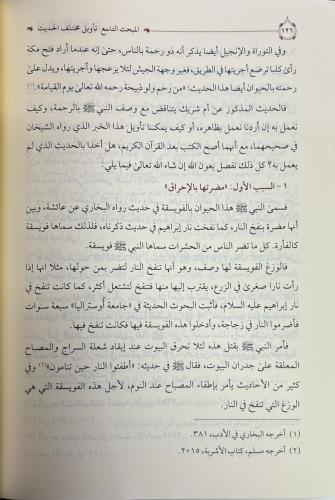 ١٢٦ المبحث التاسع: تأويل مختلف الحديث
وفي التوراة والإنجيل أيضا يذكر أنه ذو رحمة بالناس، حتى إنه عندما أراد فتح مكة
رأى كلبا ترضع أجريتها في الطريق، فغير وجهة الجيش لئلا يزعجها وأجريتها، ويدل على
رحمته بالحيوان أيضا هذا الحديث: «من رحم ولو ذبيحة رحمه الله تعالى يوم القيامة»(١)
فالحديث المذكور عن أم شريك يتناقض مع وصف النبي ﷺ بالرحمة، وكيف
نعمل به إن أردنا نعمل بظاهره، أو كيف يمكننا تأويل هذا الخبر الذي رواه الشيخان
في صحيحهما، مع أنهما أصح الكتب بعد القرآن الكريم، هل أخذا بالحديث الذي لم
يعمل به؟ كل ذلك نفصل بعون الله إن شاء الله تعالى فيما يلي:
١ - السبب الأول: «مضرتها بالإحراق»
فسمى النبي ﷺ هذا الحيوان بالفويسقة في حديث رواه البخاري عن عائشة، وبين
أنها مضرة بنفخ النار، كما نفخت نار إبراهيم في حديث ذكرناه، فلذلك سماها فويسقة
كالفأرة. كل ما تضر الناس من الحشرات سماها النبي ﷺ فويسقة.
فالوزغ الفويسقة لها وصف، وهو أنها تنفخ النار لتضر بمن حولها، مثلا انها إذا
رأت نارا صغرى في الزرع، يقترب إليها منها فتنفخ لتشتعل أكثر، كما كانت تنفخ في
نار إبراهيم عليه السلام، فأثبت البحوث الحديثة في «جامعة أوستراليا» سبعة سنوات
فأضرموا النار في زجاجة، وأدخلوا هذه الفويسقة فيها فكانت تنفخ فيها.
فأمر النبي ﷺ بقتل هذه لئلا تحرق البيوت عند إيقاد شعلة السراج والمصباح
المعلقة على جدران البيوت، فقال ﷺ في حديثه: «أطفئوا النار حين تنامون»(٢) وفي
كثير من الأحاديث يأمر بإطفاء المصباح عند النوم، لأجل هذه الفويسقة التي هي
الوزغ التي تنفخ في النار.
(١) أخرجه البخاري في الأدب، ٣٨١.
(٢) أخرجه مسلم، كتاب الأشربة، ٢٠١٥.